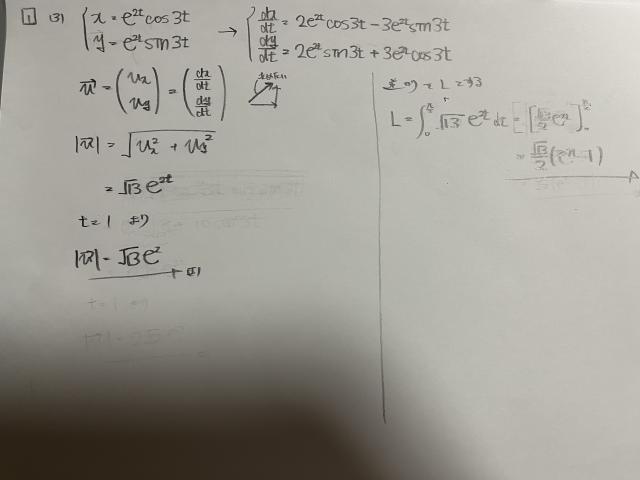 1 (3) { x = e^{2t}cos3t
y = e^{2t}sin3t → { dx/dt = 2e^{2t}cos3t - 3e^{2t}sin3t
dy/dt = 2e^{2t}sin3t + 3e^{2t}cos3t
v⃗ = (v_x
v_y) = (dx/dt
dy/dt)
|v⃗| = √(v_x² + v_y²)
= √13 e^{2t}
t=1 より
|v⃗| = √13 e²
L = ∫₀ √13 e^{2t} dt = [√13/2 e^{2t}]
= √13/2 (e^π - 1)